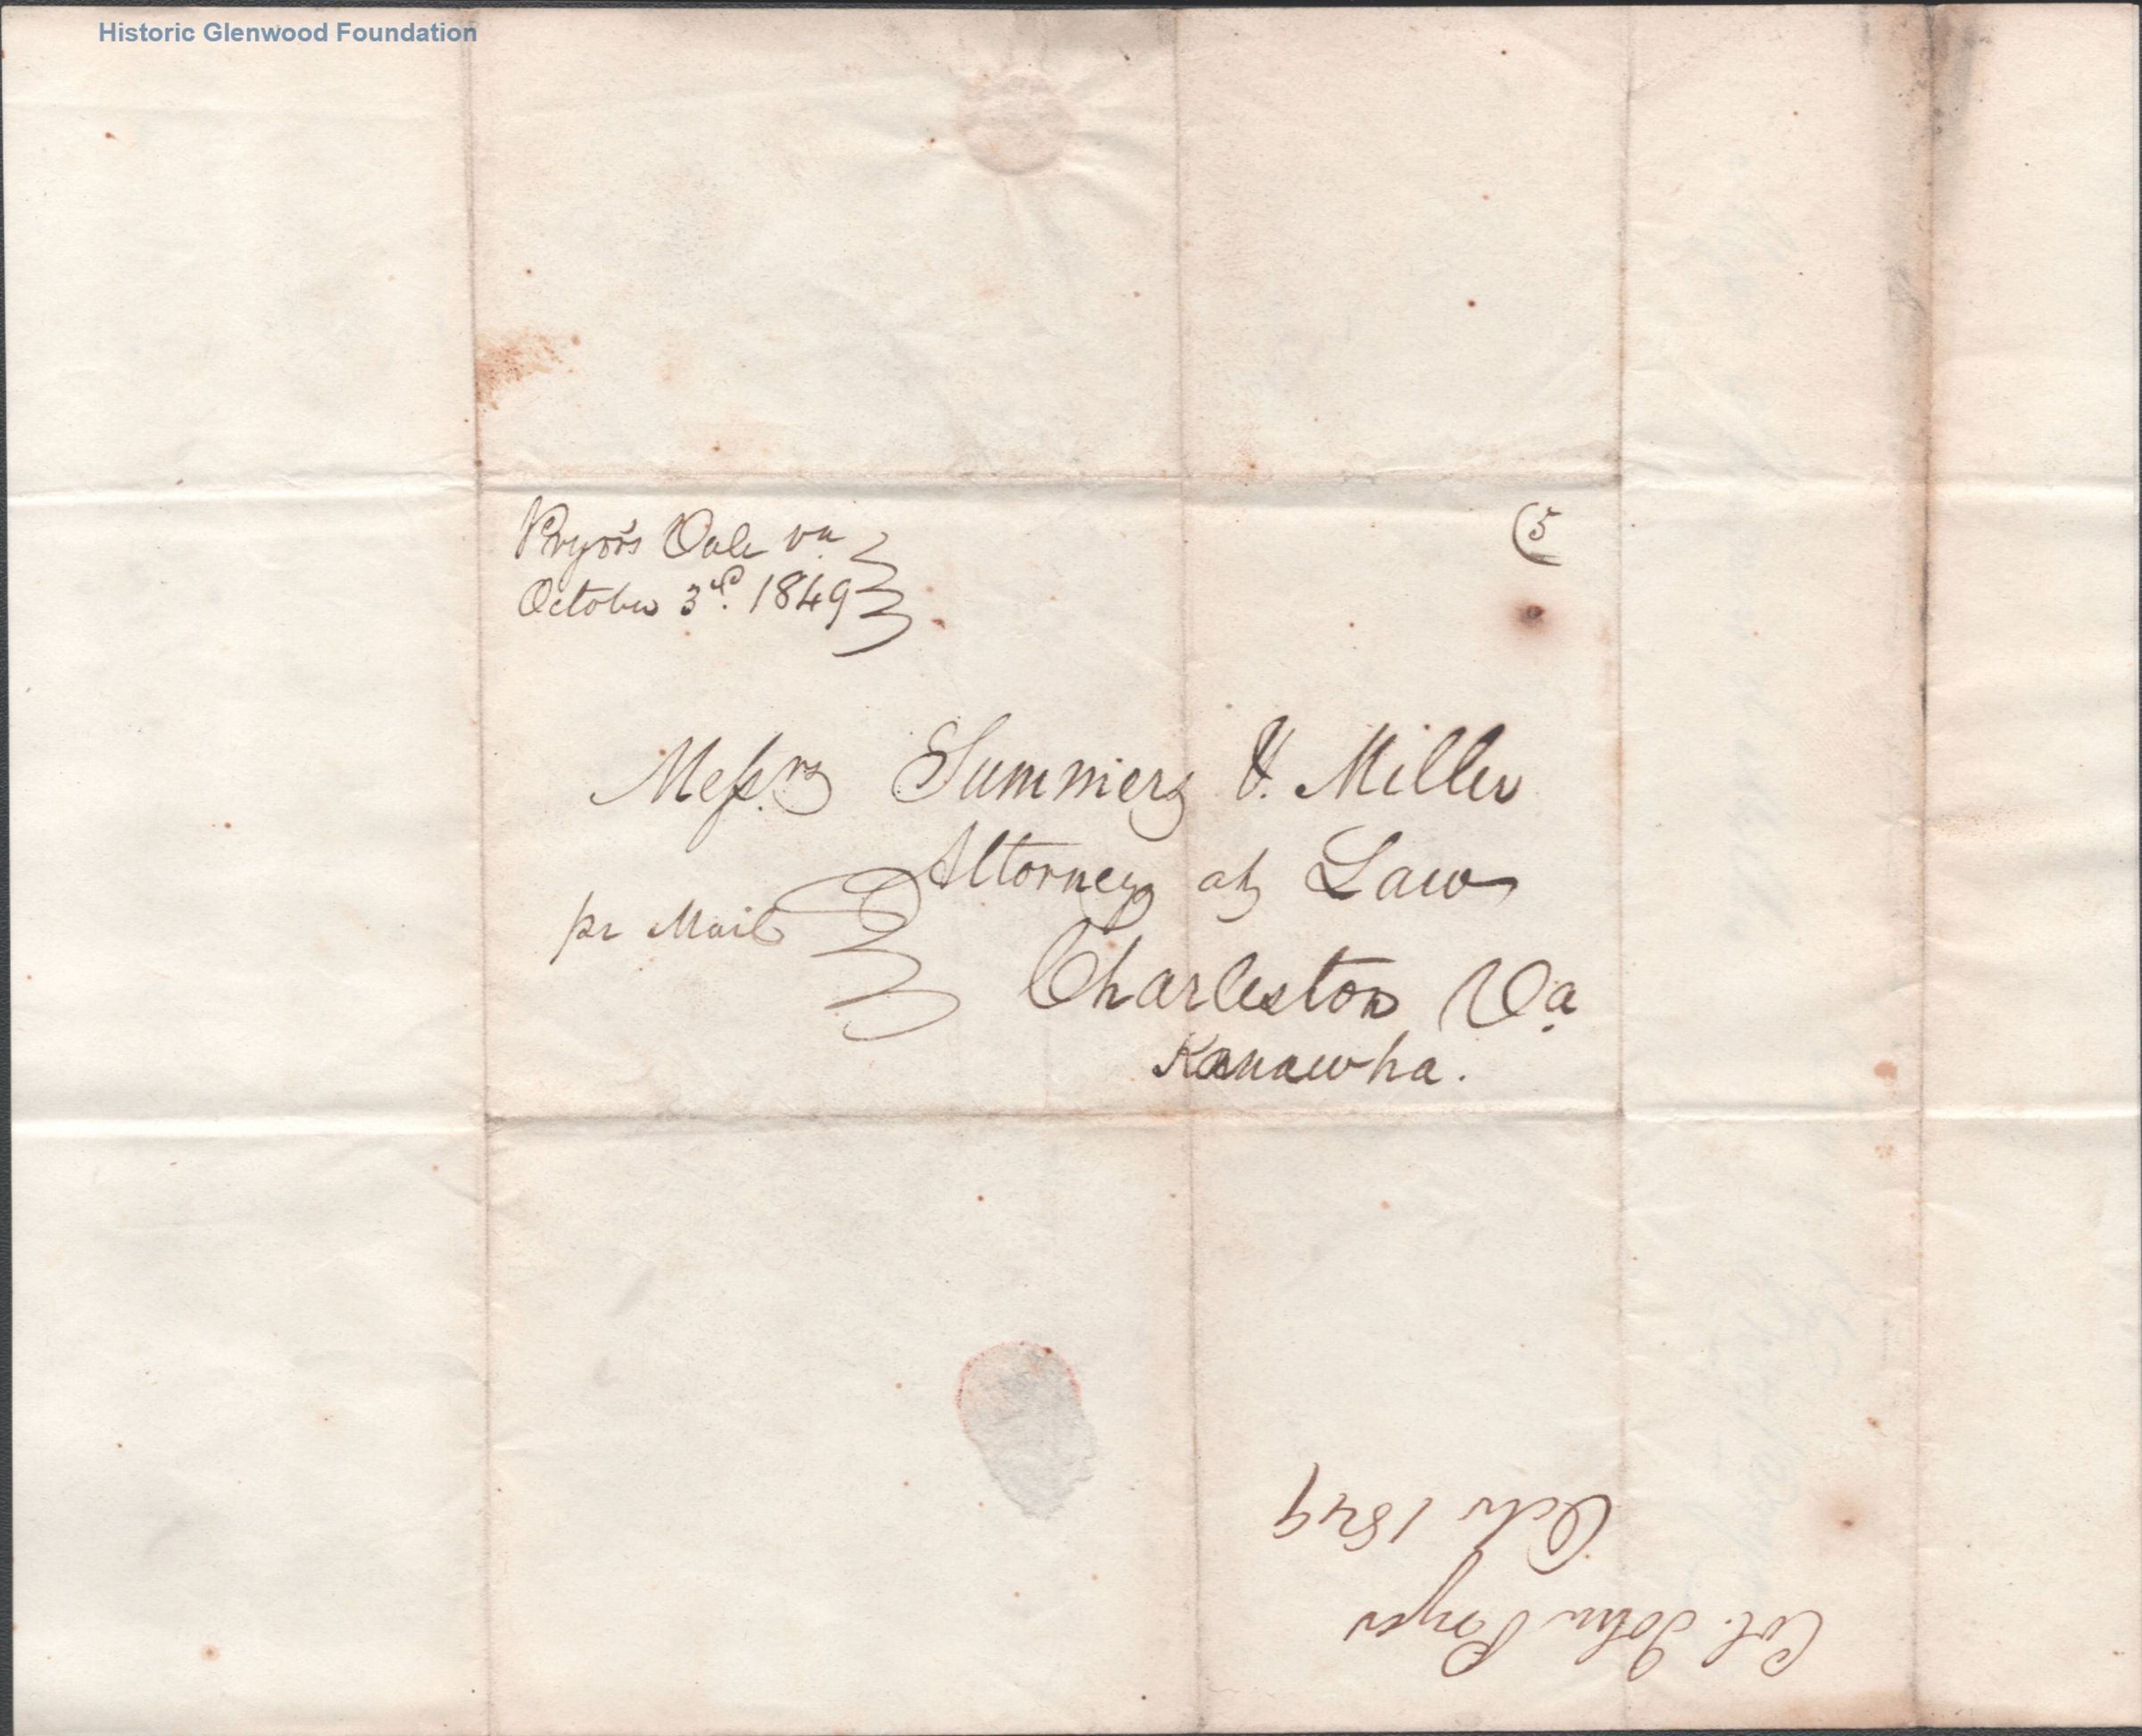 Historic Glenwood Foundation
Pryor's Vale va
October 3d. 1849
(5
Messrs Summers & Miller
Attorneys at Law
pr Mail
Charleston Va
Kanawha.
Col. John Pryor
Oct 1849